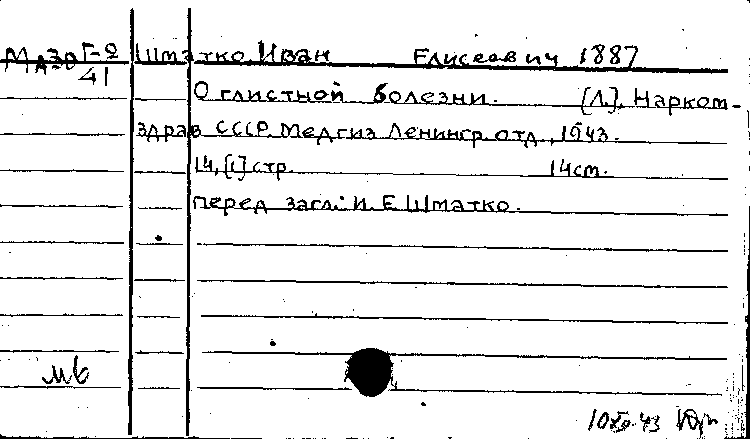 Шматко, Иван Елисеевич 1887
41
О глистной болезни. [Л.], Нарком-
здрав СССР, Медгиз Ленингр. отд., 1943.
14, [1] стр. 14 см.
перед загл.: И. Е. Шматко.
мв